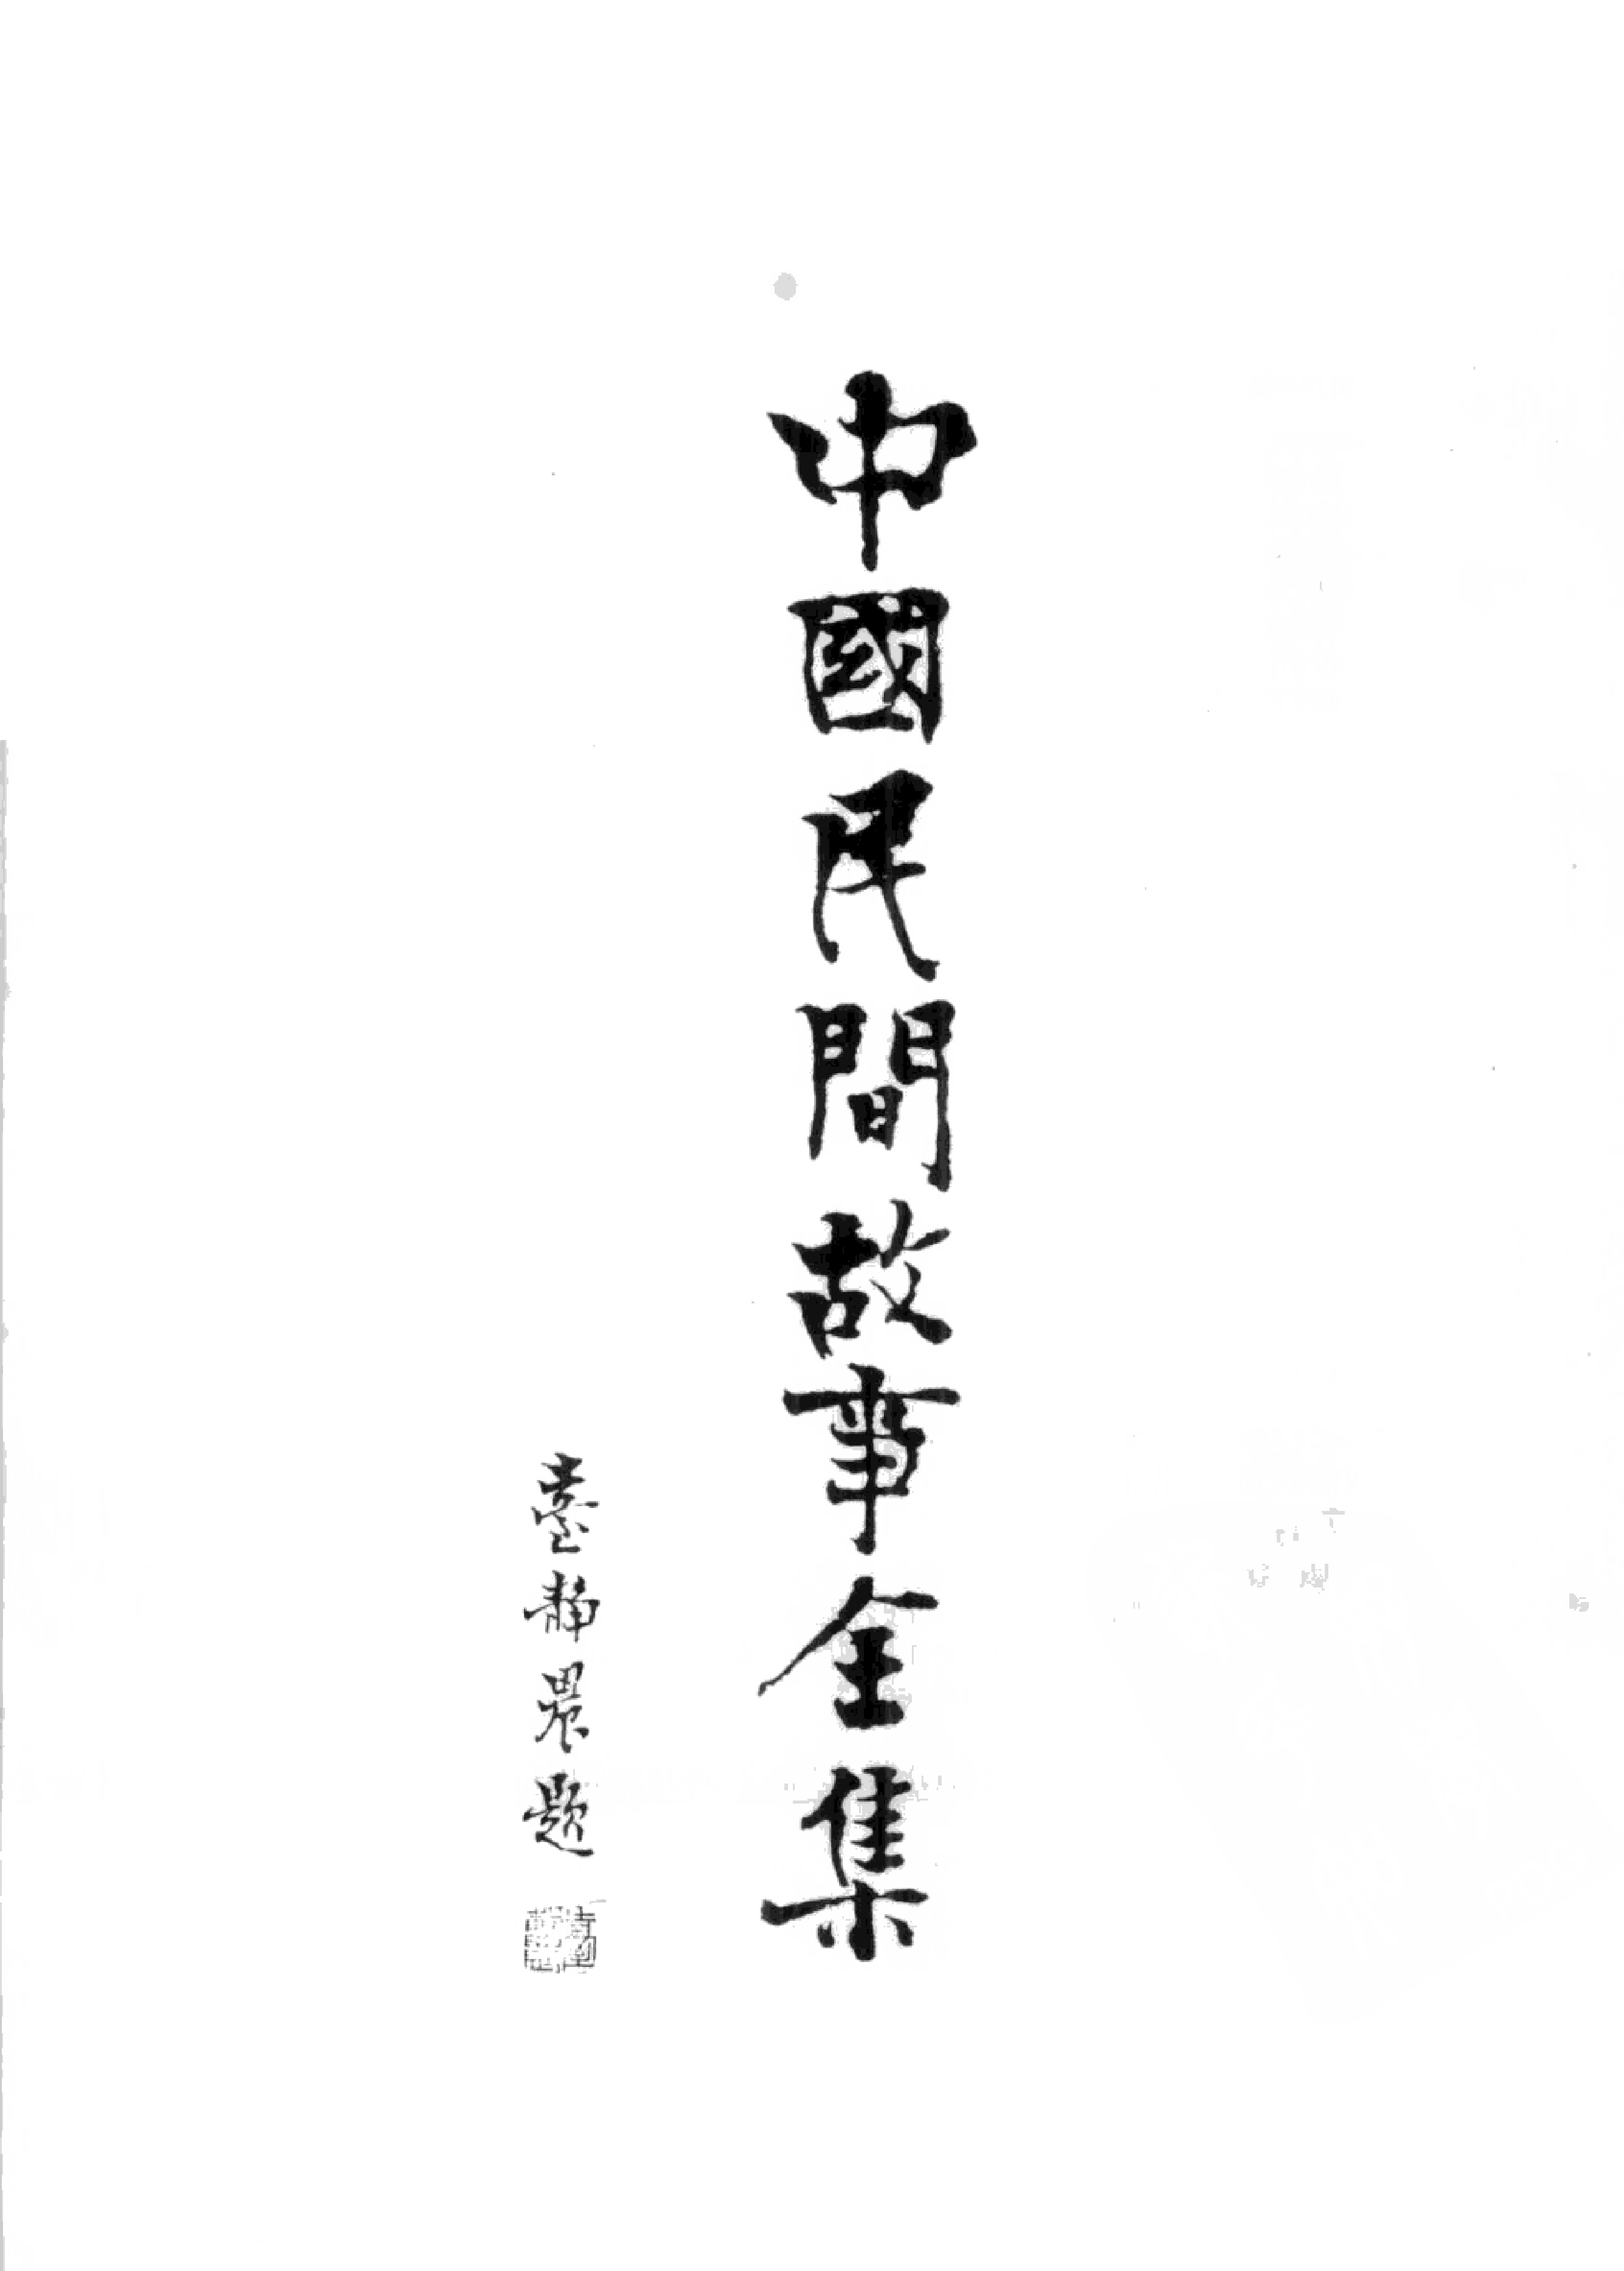 中國民間故事全集
臺静農題